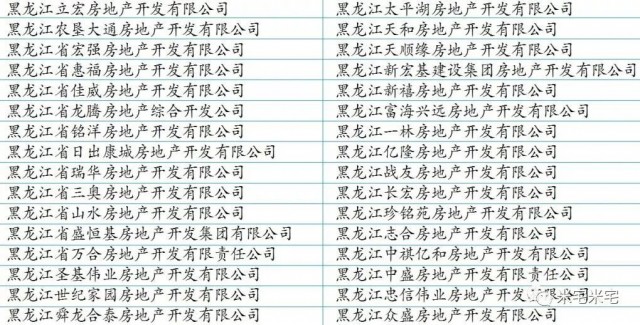 黑龙江立宏房地产开发有限公司
黑龙江太平湖房地产开发有限公司
黑龙江农垦大通房地产开发有限公司
黑龙江天和房地产开发有限公司
黑龙江省宏强房地产开发有限公司
黑龙江天顺缘房地产开发有限公司
黑龙江省惠福房地产开发有限公司
黑龙江新宏基建设集团房地产开发有限公司
黑龙江省佳威房地产开发有限公司
黑龙江新禧房地产开发有限公司
黑龙江省龙腾房地产综合开发公司
黑龙江富海兴远房地产开发有限公司
黑龙江省铭洋房地产开发有限公司
黑龙江一林房地产开发有限公司
黑龙江省日出康城房地产开发有限公司
黑龙江亿隆房地产开发有限公司
黑龙江省瑞华房地产开发有限公司
黑龙江战友房地产开发有限公司
黑龙江省三奥房地产开发有限公司
黑龙江长宏房地产开发有限公司
黑龙江省山水房地产开发有限公司
黑龙江珍铭苑房地产开发有限公司
黑龙江省盛恒基房地产开发集团有限公司
黑龙江志合房地产开发有限公司
黑龙江省万合房地产开发有限责任公司
黑龙江中祺亿和房地产开发有限公司
黑龙江圣基伟业房地产开发有限公司
黑龙江中盛房地产开发有限责任公司
黑龙江世纪家园房地产开发有限公司
黑龙江忠信伟业房地产开发有限公司
黑龙江舜龙合泰房地产开发有限公司
黑龙江众盛房地产开发有限公司
米宅米宅